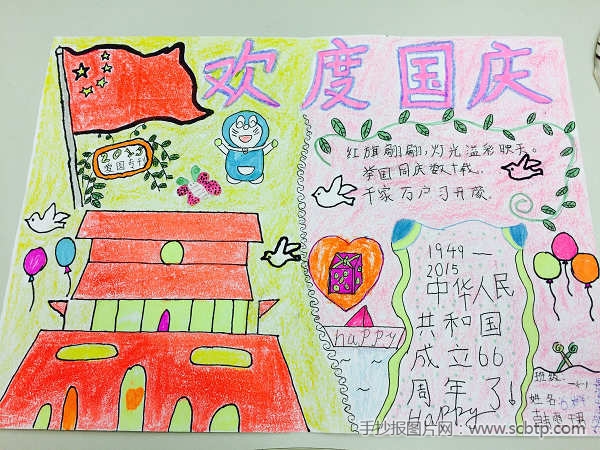 欢度国庆
2015
爱国专刊
红旗翩翩,灯光溢彩映天。
举国同庆数十载,
千家万户习开颜
1949—
2015
中华人民
共和国
成立66
周年了!
Happy
happy
班级:
姓名:
手抄报图片网:www.scbtp.com